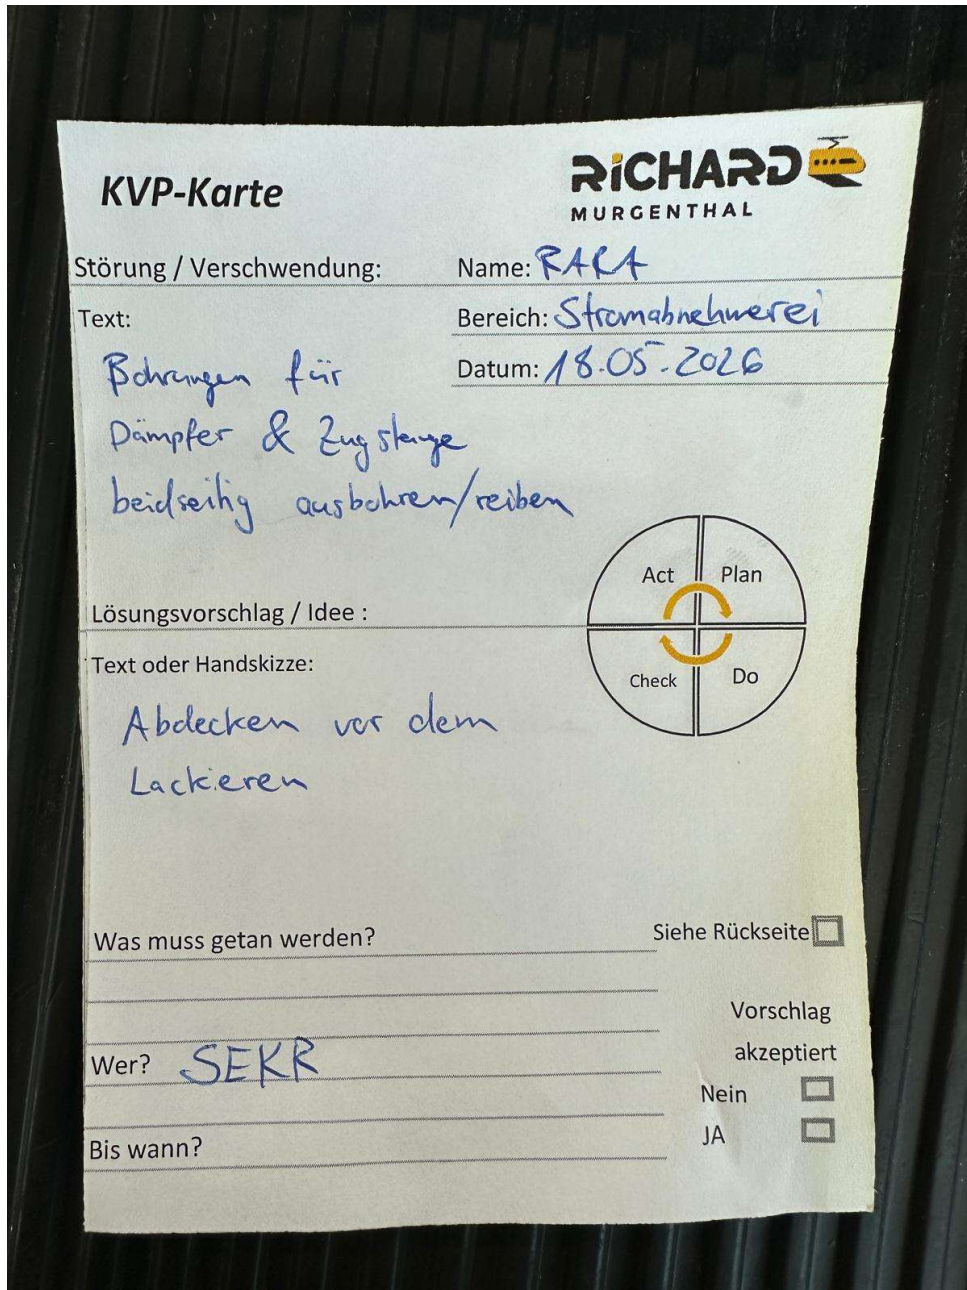 KVP-Karte
RiCHARD
MURGENTHAL
Störung / Verschwendung:
Name: RARA
Text:
Bereich: Stromabnehmerei
Datum: 18.05.2026
Bohrungen für
Dämpfer & Zugstange
beidseitig ausbohren/reiben
Act
Plan
Check
Do
Lösungsvorschlag / Idee :
Text oder Handskizze:
Abdecken vor dem
Lackieren
Was muss getan werden?
Siehe Rückseite
Vorschlag
akzeptiert
Wer? SEKR
Nein
JA
Bis wann?